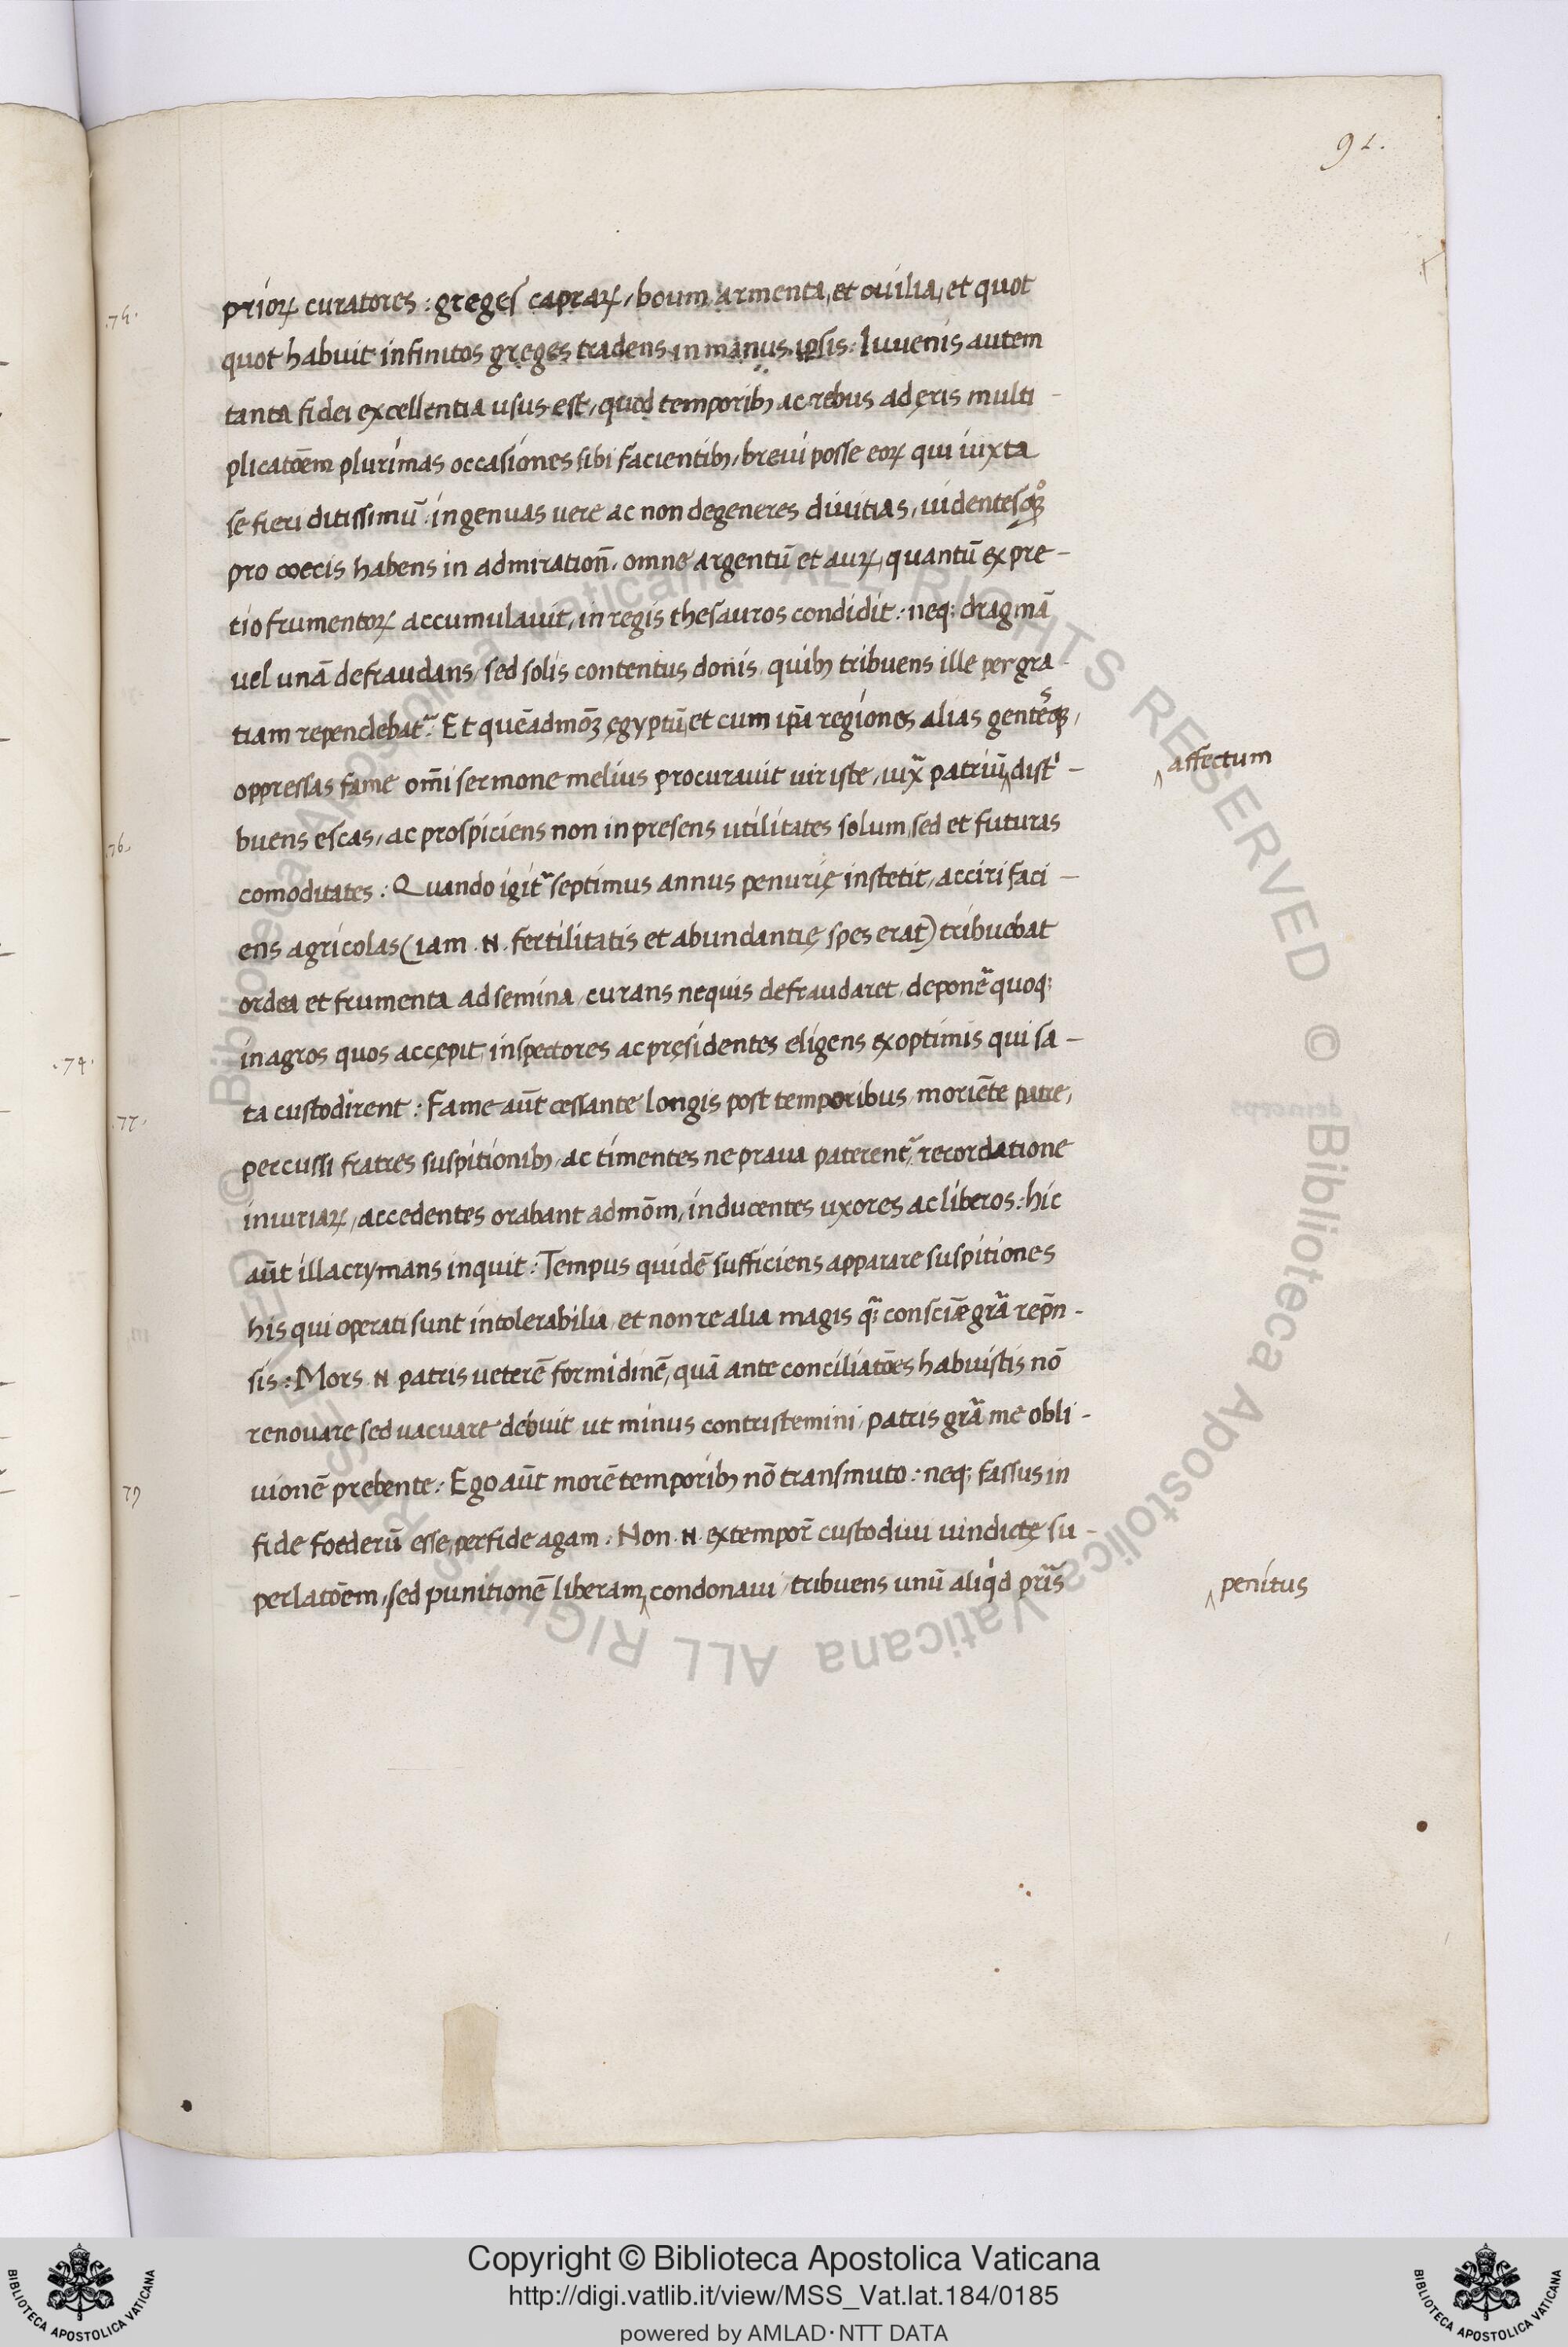 91.
prioꝝ curatores : greges capraꝝ, boum armenta, et ouilia, et quot
.75.
quot habuit infinitos greges tradens in manus ipsis : Iuuenis autem
tanta fidei excellentia usus est, quod temporibꝫ ac rebus ad ęris multi -
plicatōem plurimas occasiones sibi facientibꝫ, breui posse eoꝝ qui iuxta
se fieri ditissimū . ingenuas uere ac non degeneres diuitias, uidentesqꝫ
pro coecis habens in admirationē. omne argentū et auꝝ, quantū ex pre -
tio frumentoꝝ accumulauit, in regis thesauros condidit : neqꝫ dragmā
uel unā defraudans, sed solis contentus donis, quibꝫ tribuens ille per gra -
tiam rependebat᷑. Et quēadmoꝫ ęgyptū, et cum ip̄a regiones alias gentesqꝫ,
oppressas fame om̄i sermone melius procurauit uir iste, iux̄ patriū ‸ distⁱ -
‸ affectum
buens escas, ac prospiciens non in presens utilitates solum, sed et futuras
.76.
comoditates : Quando igit᷑ septimus annus penurię instetit, acciri faci -
ens agricolas (iam .N. fertilitatis et abundantię spes erat) tribuebat
ordea et frumenta ad semina, curans nequis defraudaret, deponē quoqꝫ
in agros quos accępit, inspectores ac pręsidentes eligens ex optimis qui sa -
.74.
ta custodirent : Fame aūt cessante longis post temporibus, moriēte patre,
.77.
percussi fratres suspitionibꝫ, ac timentes ne praua paterent᷑, recordatione
iniuriaꝝ, accedentes orabant admōm, inducentes uxores ac liberos : hic
aūt illacrymans inquit : Tempus quidē sufficiens apparare suspitiones
his qui operati sunt intolerabilia, et non re alia magis qꝫ consciæ grā rep̄n -
sis : Mors .N. patris ueterē formidinē, quā ante conciliatōes habuistis nō
renouare sed uacuare debuit, ut minus contristemini, patris grā me obli -
uionē prebente : Ego aūt morē temporibꝫ nō transmuto : neqꝫ fassus in
79
fide foederū esse, perfide agam. Non .N. ex tempor̄ custodiui uindictę su -
perlatōem, sed punitionē liberam ‸ condonaui, tribuens unū aliqⁱd pr̄is
‸ penitus
© Biblioteca Apostolica Vaticana ALL RIGHTS RESERVED © Biblioteca Apostolica Vaticana ALL RIGHTS RESERVED
Copyright © Biblioteca Apostolica Vaticana
http://digi.vatlib.it/view/MSS_Vat.lat.184/0185
powered by AMLAD·NTT DATA
BIBLIOTECA APOSTOLICA VATICANA
BIBLIOTECA APOSTOLICA VATICANA